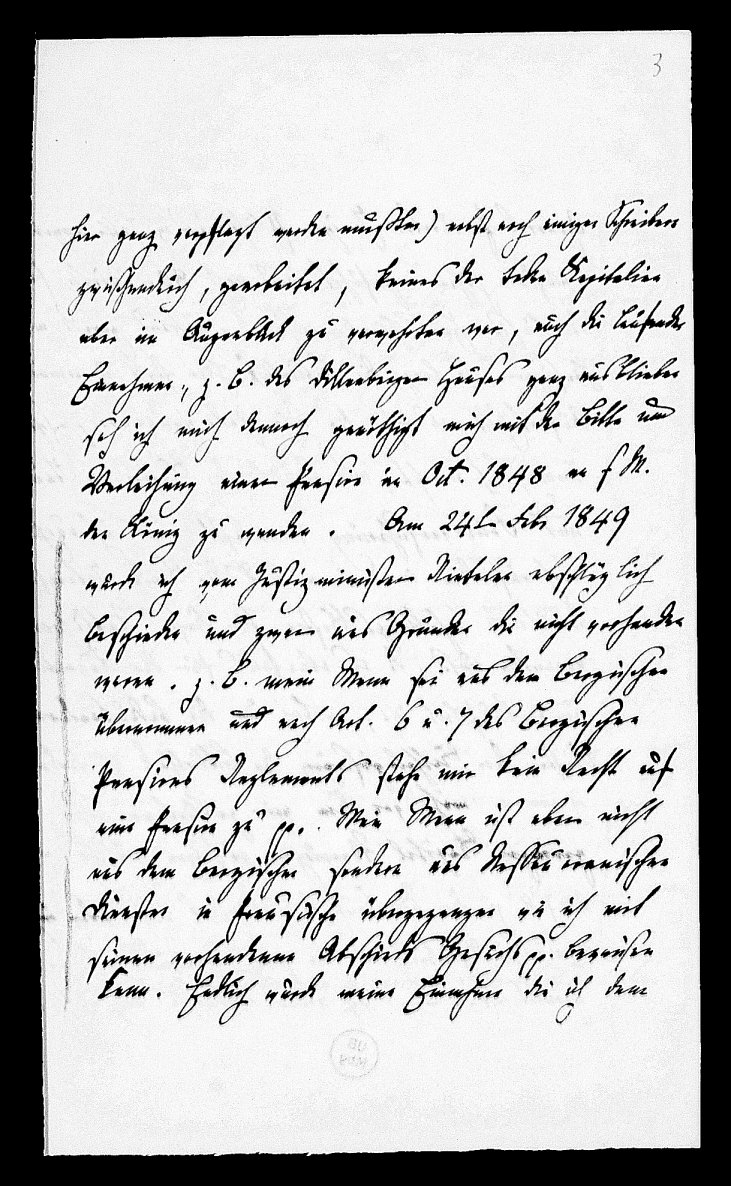 3
hier ganz verpflegt werden mußten) nebst noch einigen Schreibern
zwischendurch, gearbeitet, keines der Kapitalien
aber im Augenblick zu verwerthen war, auch die laufende
Einnahmen, z. B. des Dillenburger Hauses ganz ausblieben
sah ich mich dennoch genöthigt mich mit der Bitte um
Verleihung einer Pension im Oct. 1848 an s M.
den König zu wenden. Am 24t Feb 1849
wurde ich vom Justizminister Rintelen abschläglich
beschieden und zwar aus Gründen die nicht vorhanden
waren. z. B. mein Mann sei aus dem Bergischen
übernommen und nach Art. 6 u. 7 des Bergischen
Pensions Reglements stehe mir kein Recht auf
eine Pension zu pp. Mein Mann ist aber nicht
aus dem Bergischen sondern aus Nassau oranischen
Diensten in Preusische übergegangen wie ich mit
seinem vorhandenen Abschieds Gesuch pp. beweisen
kann. Endlich wurde meine Einnahme die ich dem